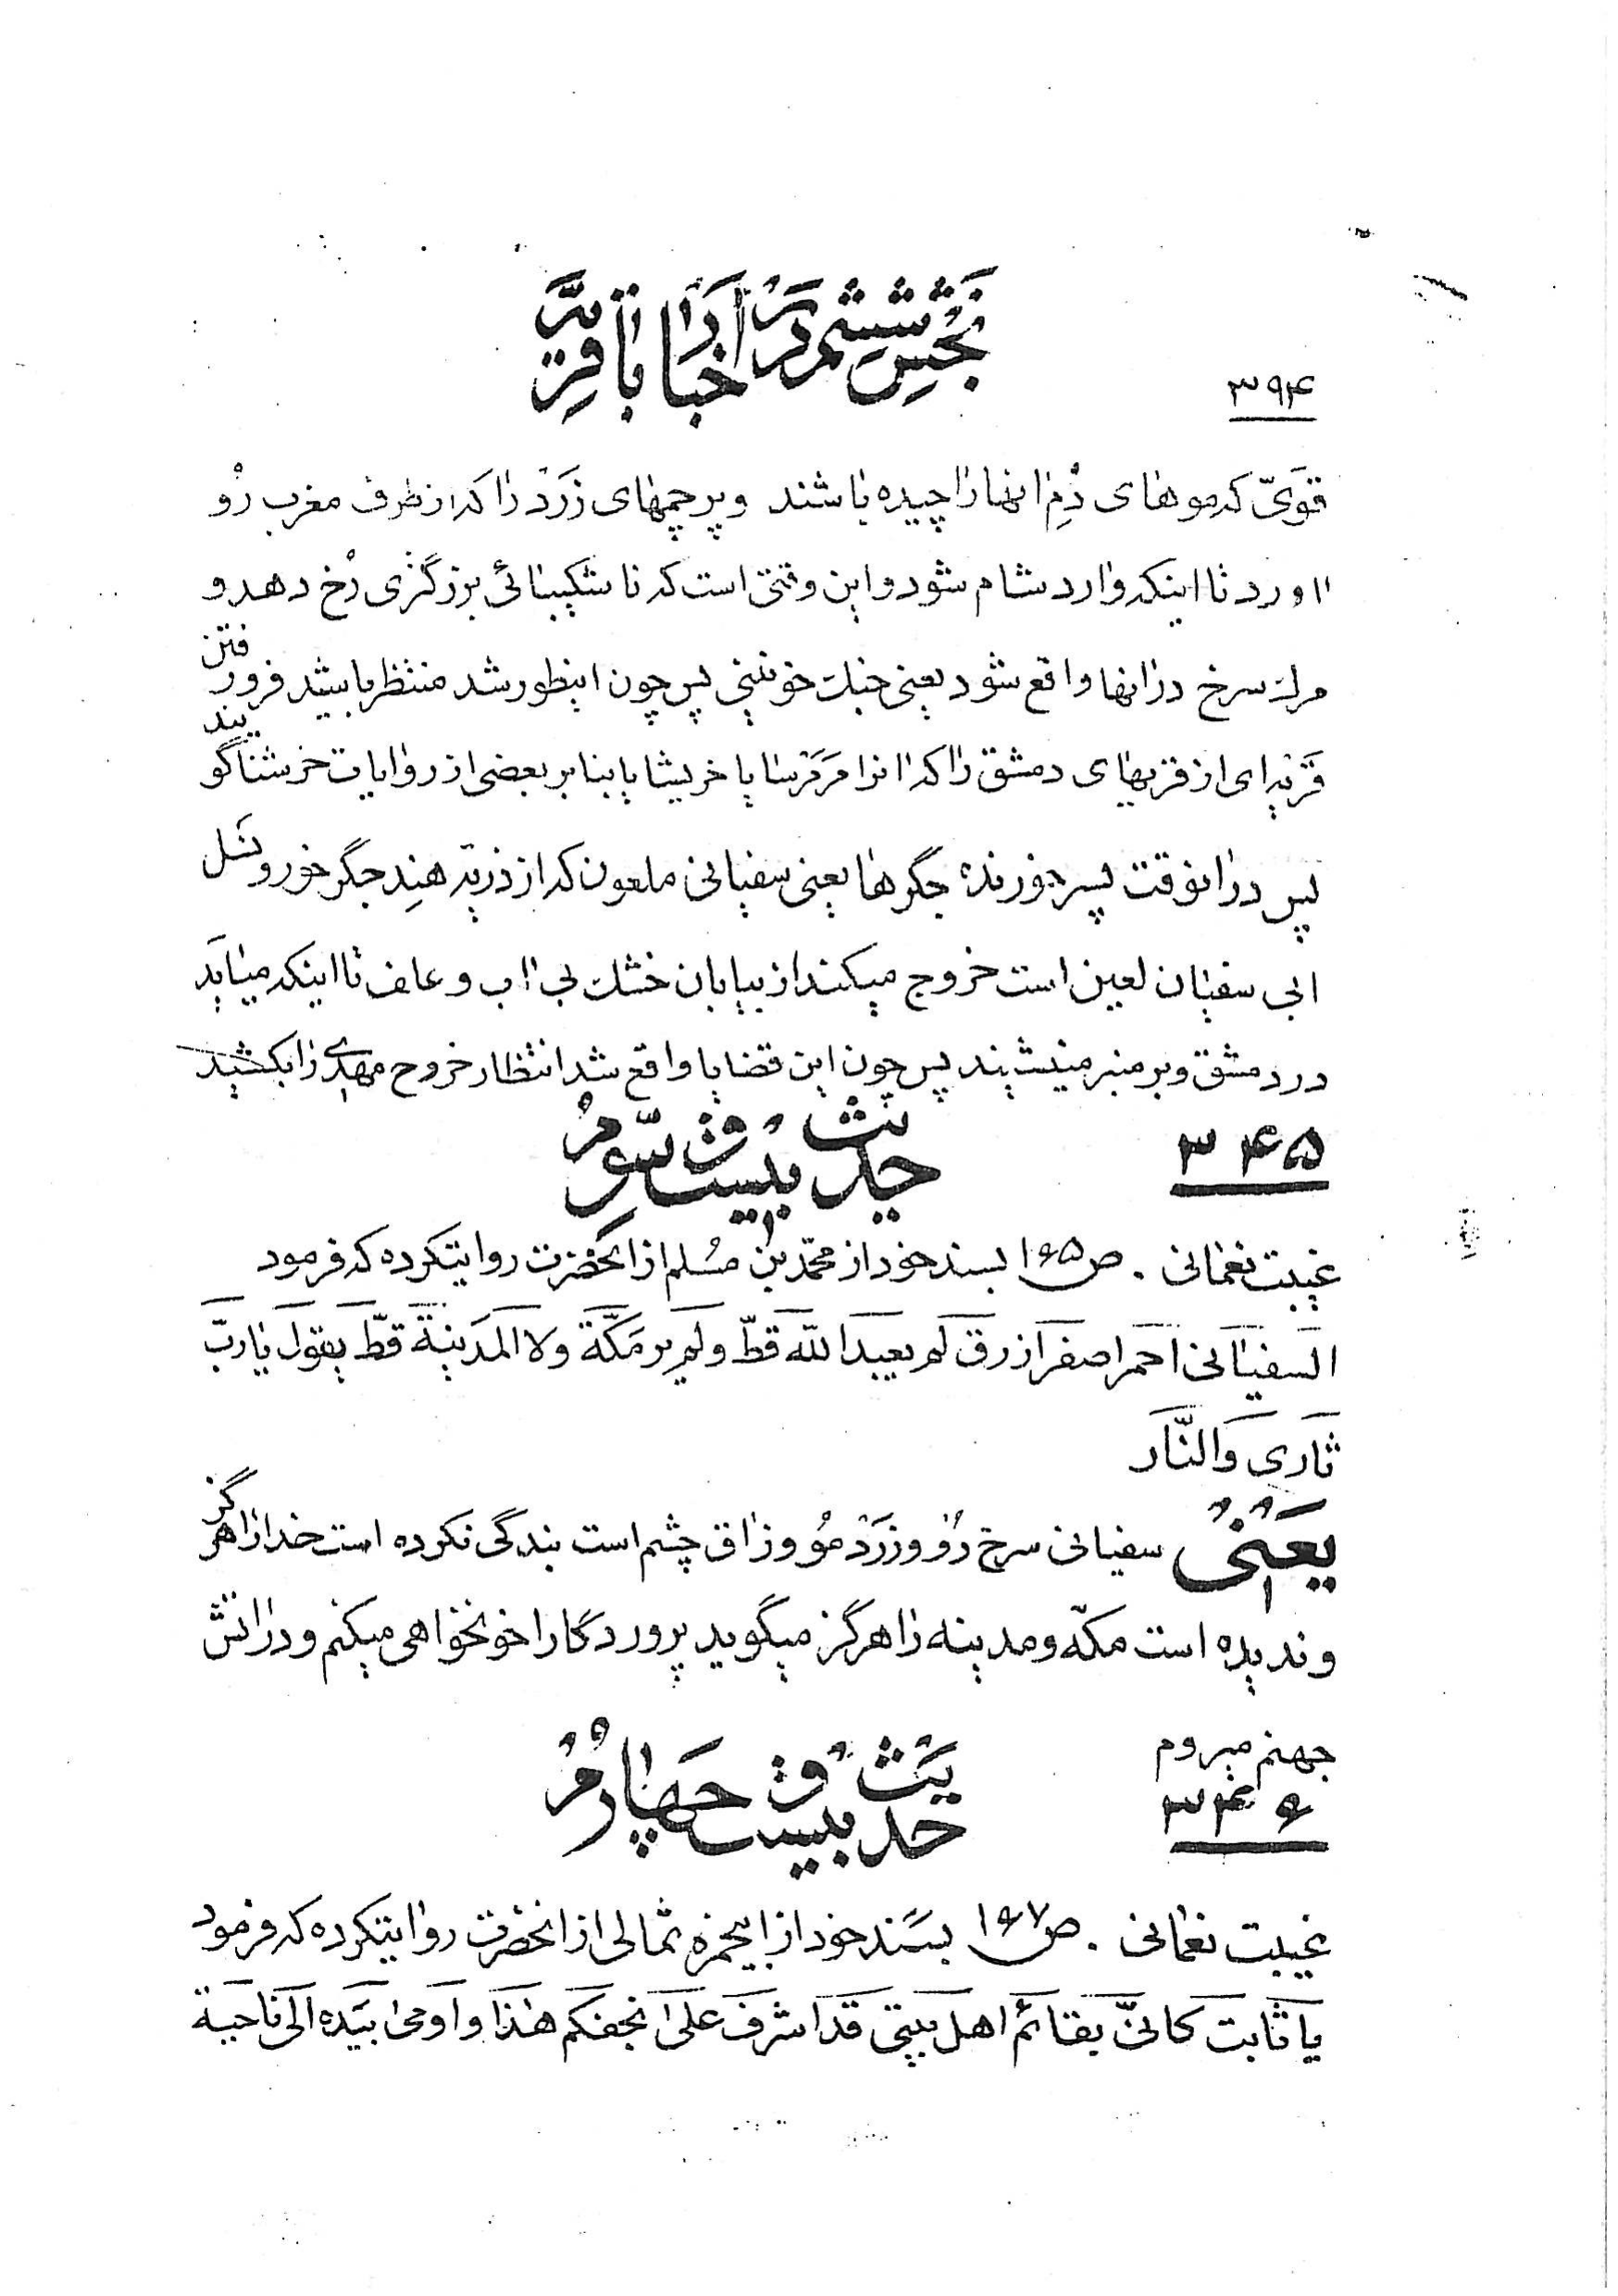 بخش ششم در اخبار باقریّه
۳۹۴
قویّ که موهای دُم انها را چیده باشند و پرچمهای زَرَد را که از طرف مغرب رُو
ااورد تا اینکه وارد شام شود و این وقتی است که ناشکیبائی بزرگتری رُخ دهد و
مرك سرخ در انها واقع شود یعنی جنك خونینی پس چون اینطور شد منتظر باشید فرورفتن
قَریه ای از قریهای دمشق را که اانرا مَرمَرسَا یا خریشا یا بنابر بعضی از روایات خرشنا گویند
پس در انوقت پسر خورنده جگرها یعنی سفیانی ملعون که از ذریّه هندِ جگرخور و نسل
ابی سفیان لعین است خروج میکند از بیابان خشك بی ااب و علف تا اینکه میاید
در دمشق و بر منبر مینشیند پس چون این قضایا واقع شد انتظار خروج مهدی را بکشید
۳۴۵ حدیث بیست و سوّم
غیبت نعمانی . ص۱۶۵ بسند خود از محمّد بن مُسلم از انحضرت روایتکرده که فرمود
السفیانی احمر اصفر ازرق لم یعبد اللّه قطّ ولم یر مکّة ولا المدینة قطّ یقول یا ربّ
ثاری والنّار
یعنی سفیانی سرخ رُو و زَرد مُو و زاق چشم است بندگی نکرده است خدا را هرگز
و ندیده است مکّه و مدینه را هرگز میگوید پروردگارا خونخواهی میکنم و در اتش
جهنم میروم
۳۴۶ حدیث بیست و چهارم
غیبت نعمانی . ص۱۶۷ بسَند خود از ابیحمزه ثمالی از انحضرت روایتکرده که فرمود
یا ثابت کانّی بقائم اهل بیتی قد اشرف علی نجفکم هذا و اومی بیده الی ناحیة